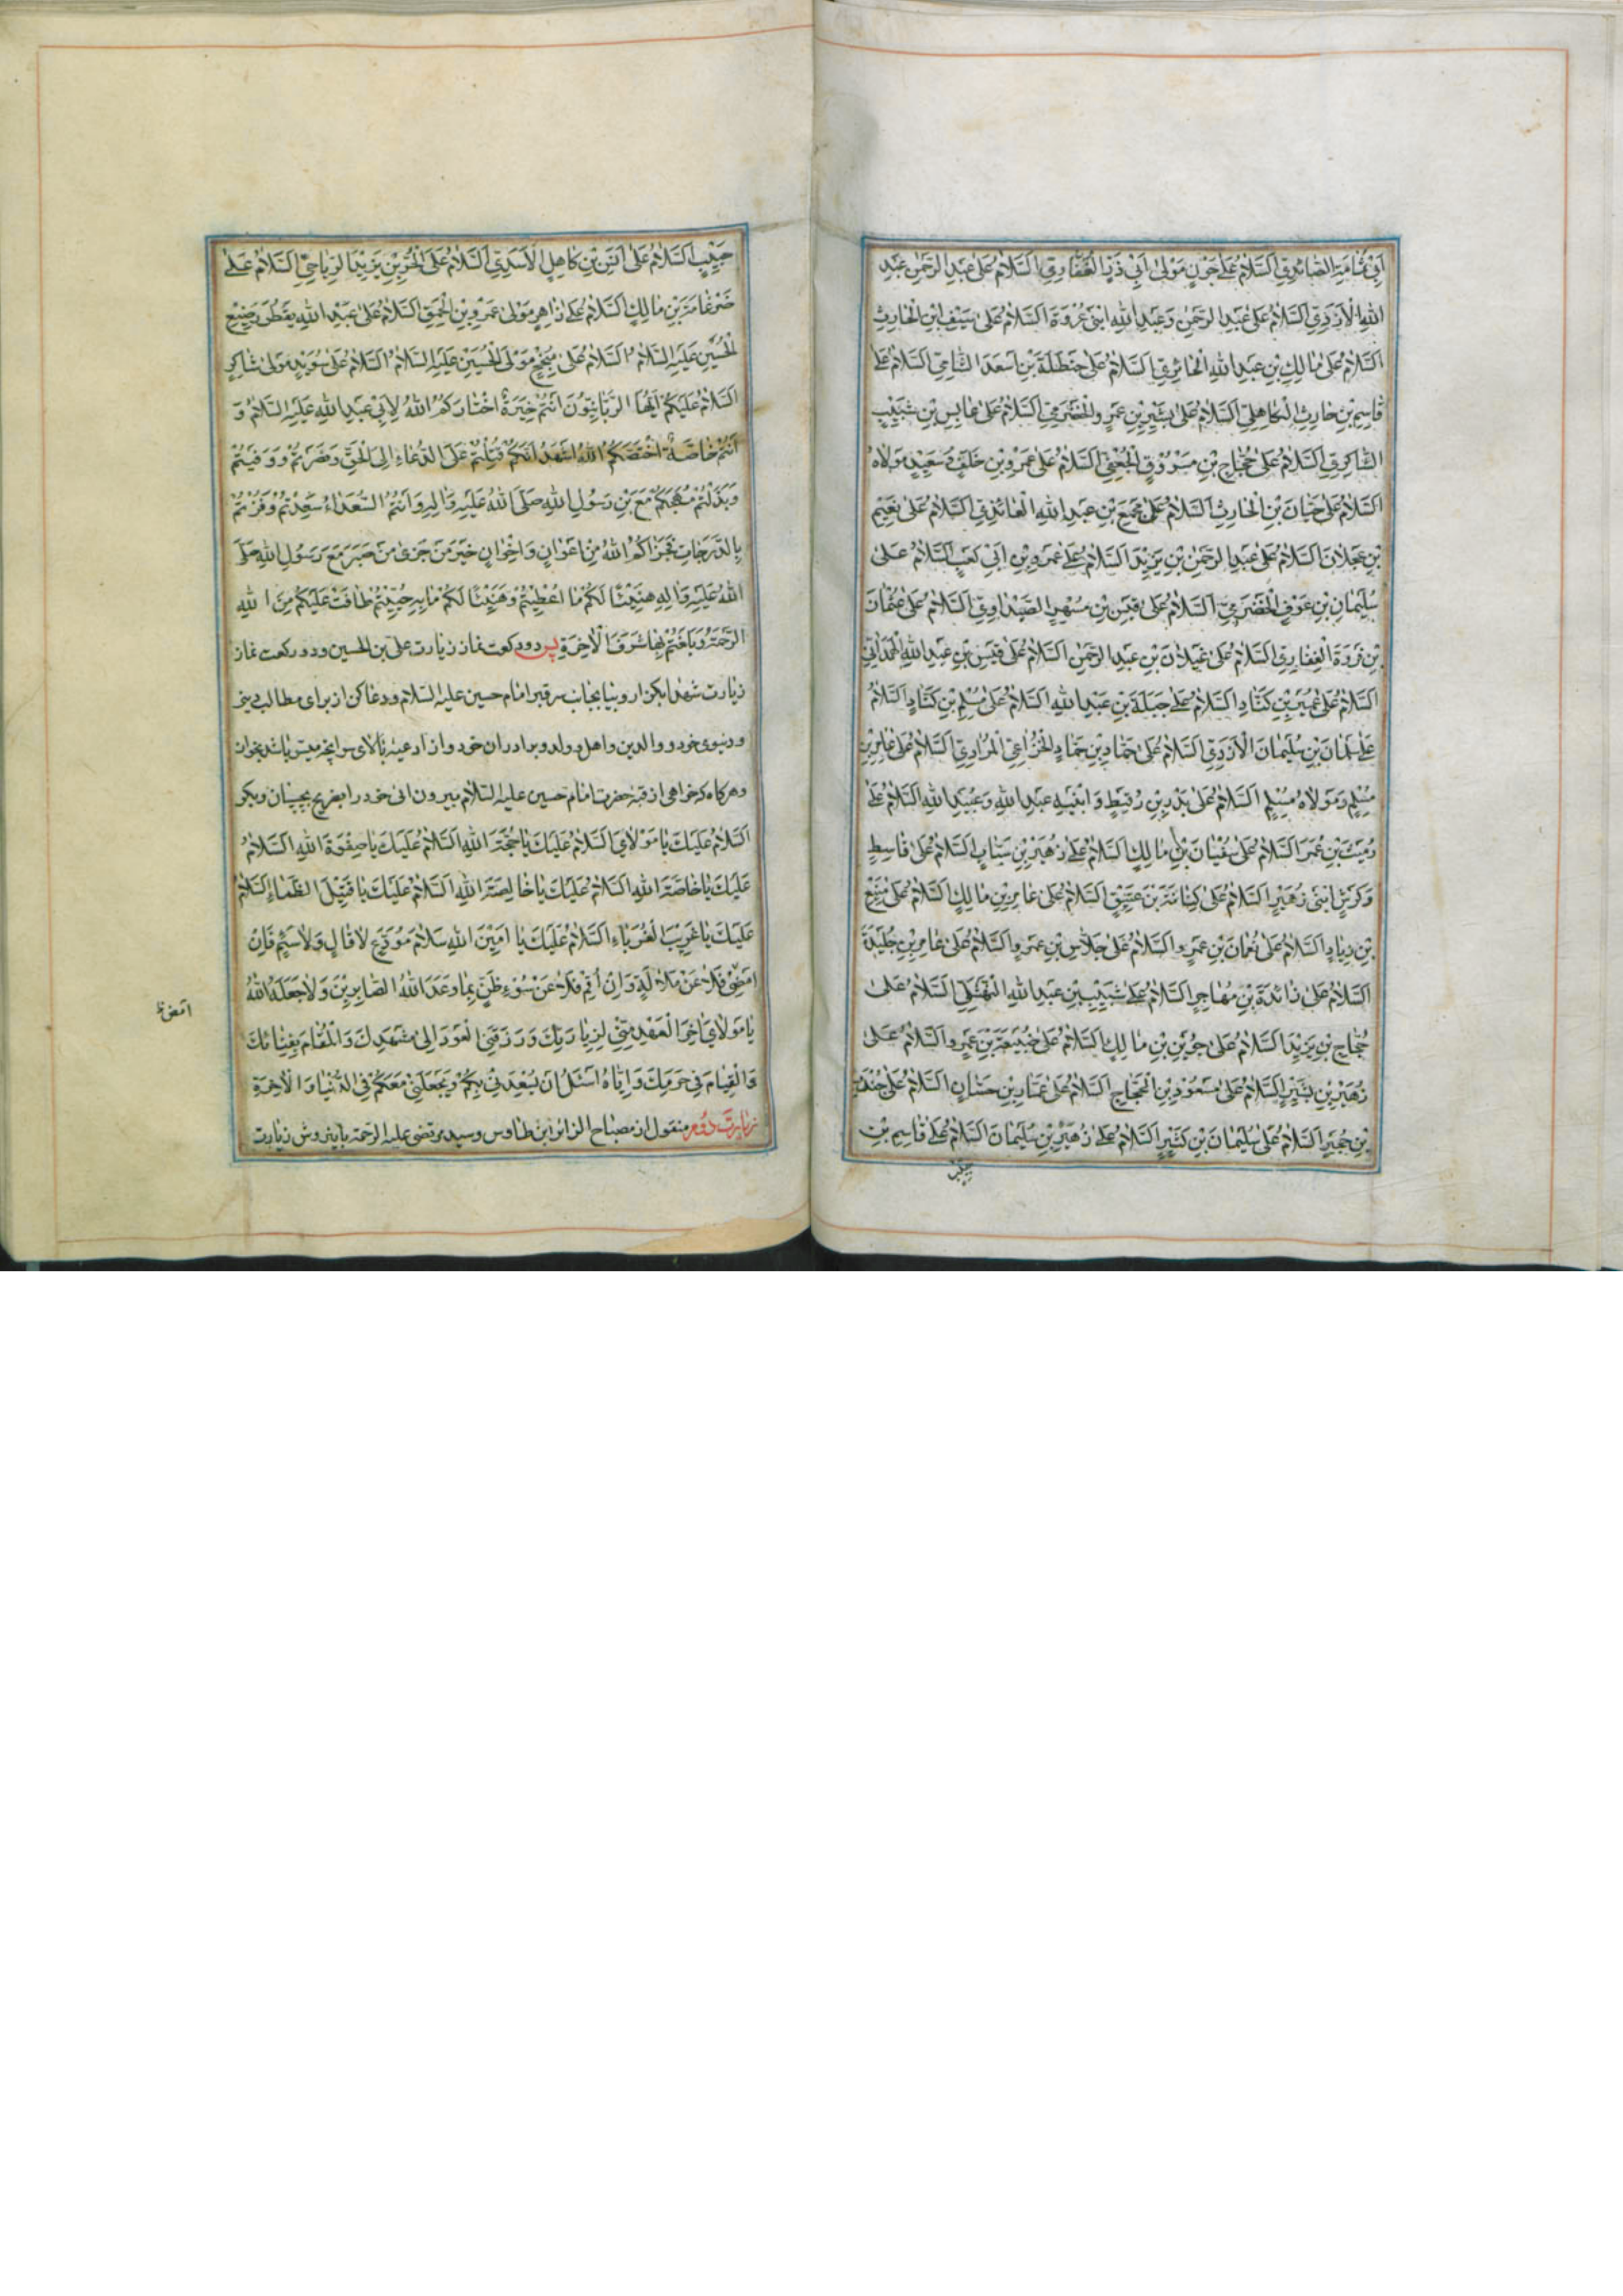 اَبِي ثُمَامَةَ الصَّائِدِيِّ اَلسَّلَامُ عَلَى جَوْنٍ مَوْلَى اَبِي ذَرٍّ الْغِفَارِيِّ اَلسَّلَامُ عَلَى عَبْدِ الرَّحْمٰنِ بْنِ عَبْدِ
اللّٰهِ الْاَزْدِيِّ اَلسَّلَامُ عَلَى عَبْدِ الرَّحْمٰنِ وَعَبْدِ اللّٰهِ ابْنَيْ عُرْوَةَ اَلسَّلَامُ عَلَى سَيْفِ ابْنِ الْحَارِثِ
اَلسَّلَامُ عَلَى مَالِكِ بْنِ عَبْدِ اللّٰهِ الْحَائِرِيِّ اَلسَّلَامُ عَلَى حَنْظَلَةَ بْنِ اَسْعَدَ الشَّامِيِّ اَلسَّلَامُ عَلَى
قَاسِمِ بْنِ حَارِثِ الْكَاهِلِيِّ اَلسَّلَامُ عَلَى بَشِيرِ بْنِ عَمْرٍو الْحَضْرَمِيِّ اَلسَّلَامُ عَلَى عَابِسِ بْنِ شَبِيبٍ
الشَّاكِرِيِّ اَلسَّلَامُ عَلَى حَجَّاجِ بْنِ مَسْرُوقٍ الْجُعْفِيِّ اَلسَّلَامُ عَلَى عَمْرِو بْنِ خَلَفٍ وَسَعِيدٍ مَوْلَاهُ
اَلسَّلَامُ عَلَى حَيَّانَ بْنِ الْحَارِثِ اَلسَّلَامُ عَلَى مُجَمِّعِ بْنِ عَبْدِ اللّٰهِ الْعَائِذِيِّ اَلسَّلَامُ عَلَى نُعَيْمِ
بْنِ عَجْلَانَ اَلسَّلَامُ عَلَى عَبْدِ الرَّحْمٰنِ بْنِ يَزِيدَ اَلسَّلَامُ عَلَى عُمَرَ وبْنِ اَبِي كَعْبٍ اَلسَّلَامُ عَلَى
سُلَيْمَانِ بْنِ عَوْفٍ الْحَضْرَمِيِّ اَلسَّلَامُ عَلَى قَيْسِ بْنِ مُسْهِرٍ الصَّيْدَاوِيِّ اَلسَّلَامُ عَلَى عُثْمَانَ
بْنِ فَرْوَةَ الْغِفَارِيِّ اَلسَّلَامُ عَلَى غَيْلَانَ بْنِ عَبْدِ الرَّحْمٰنِ اَلسَّلَامُ عَلَى قَيْسِ بْنِ عَبْدِ اللّٰهِ الْهَمْدَانِيِّ
اَلسَّلَامُ عَلَى عُمَيْرِ بْنِ كَنَّادٍ اَلسَّلَامُ عَلَى جَبَلَةَ بْنِ عَبْدِ اللّٰهِ اَلسَّلَامُ عَلَى مُسْلِمِ بْنِ كَنَّادٍ اَلسَّلَامُ
عَلَى سُلَيْمَانَ بْنِ سُلَيْمَانَ الْاَزْدِيِّ اَلسَّلَامُ عَلَى حَمَّادِ بْنِ حَمَّادٍ الْخُزَاعِيِّ الْمُرَادِيِّ اَلسَّلَامُ عَلَى عَامِرِ بْنِ
مُسْلِمٍ وَمَوْلَاهُ مُسْلِمٍ اَلسَّلَامُ عَلَى بَدْرِ بْنِ رُقَيْطٍ وَابْنَيْهِ عَبْدِ اللّٰهِ وَعُبَيْدِ اللّٰهِ اَلسَّلَامُ عَلَى
رُمَيْثِ بْنِ عُمَرَ اَلسَّلَامُ عَلَى سُفْيَانَ بْنِ مَالِكٍ اَلسَّلَامُ عَلَى زُهَيْرِ بْنِ سَيَّابٍ اَلسَّلَامُ عَلَى قَاسِطٍ
وَكَرْشٍ ابْنَيْ زُهَيْرٍ اَلسَّلَامُ عَلَى كِنَانَةَ بْنِ عَتِيقٍ اَلسَّلَامُ عَلَى عَامِرِ بْنِ مَالِكٍ اَلسَّلَامُ عَلَى مَنِيعِ
بْنِ زِيَادٍ اَلسَّلَامُ عَلَى نُعْمَانَ بْنِ عَمْرٍو اَلسَّلَامُ عَلَى جَلَّاسِ بْنِ عَمْرٍو اَلسَّلَامُ عَلَى عَامِرِ بْنِ جُلَيْدَةَ
اَلسَّلَامُ عَلَى زَائِدَةَ بْنِ مُهَاجِرٍ اَلسَّلَامُ عَلَى شَبِيبِ بْنِ عَبْدِ اللّٰهِ النَّهْشَلِيِّ اَلسَّلَامُ عَلَى
حَجَّاجِ بْنِ يَزِيدَ اَلسَّلَامُ عَلَى جُوَيْرِ بْنِ مَالِكٍ اَلسَّلَامُ عَلَى ضُبَيْعَةَ بْنِ عَمْرٍو اَلسَّلَامُ عَلَى
زُهَيْرِ بْنِ بَشِيرٍ اَلسَّلَامُ عَلَى مَسْعُودِ بْنِ الْحَجَّاجِ اَلسَّلَامُ عَلَى عَمَّارِ بْنِ حَسَّانٍ اَلسَّلَامُ عَلَى جُنْدَبِ
بْنِ حُجَيْرٍ اَلسَّلَامُ عَلَى سُلَيْمَانَ بْنِ كَثِيرٍ اَلسَّلَامُ عَلَى زُهَيْرِ بْنِ سُلَيْمَانَ اَلسَّلَامُ عَلَى قَاسِمِ بْنِ
حَبِيبٍ
حَبِيبٍ اَلسَّلَامُ عَلَى اَنَسِ بْنِ كَاهِلٍ الْاَسَدِيِّ اَلسَّلَامُ عَلَى الْحُرِّ بْنِ يَزِيدَ الرِّيَاحِيِّ اَلسَّلَامُ عَلَى
ضَرْغَامَةَ بْنِ مَالِكٍ اَلسَّلَامُ عَلَى زَاهِرٍ مَوْلَى عَمْرِو بْنِ الْحَمِقِ اَلسَّلَامُ عَلَى عَبْدِ اللّٰهِ بْنِ يَقْطُرَ رَضِيعِ
الْحُسَيْنِ عَلَيْهِ السَّلَامُ اَلسَّلَامُ عَلَى مُنْجِحٍ مَوْلَى الْحُسَيْنِ عَلَيْهِ السَّلَامُ اَلسَّلَامُ عَلَى سُوَيْدٍ مَوْلَى شَاكِرٍ
اَلسَّلَامُ عَلَيْكُمْ اَيُّهَا الرَّبَّانِيُّونَ اَنْتُمْ خِيَرَةٌ اخْتَارَكُمُ اللّٰهُ لِاَبِي عَبْدِ اللّٰهِ عَلَيْهِ السَّلَامُ وَ
اَنْتُمْ خَاصَّةٌ اخْتَصَّكُمُ اللّٰهُ اَشْهَدُ اَنَّكُمْ قُتِلْتُمْ عَلَى الدُّعَاءِ اِلَى الْحَقِّ وَنَصَرْتُمْ وَوَفَيْتُمْ
وَبَذَلْتُمْ مُهَجَكُمْ مَعَ بْنِ رَسُولِ اللّٰهِ صَلَّى اللّٰهُ عَلَيْهِ وَاٰلِهِ وَاَنْتُمُ السُّعَدَاءُ سَعِدْتُمْ وَفُزْتُمْ
بِالدَّرَجَاتِ فَجَزَاكُمُ اللّٰهُ مِنْ اَعْوَانٍ وَاِخْوَانٍ خَيْرَ مَنْ جَزَى مَنْ صَبَرَ مَعَ رَسُولِ اللّٰهِ صَلَّى
اللّٰهُ عَلَيْهِ وَاٰلِهِ هَنِيئًا لَكُمْ مَا اُعْطِيتُمْ وَهَنِيئًا لَكُمْ مَا بِهِ حُيِّيتُمْ طَافَتْ عَلَيْكُمْ مِنَ اللّٰهِ
الرَّحْمَةُ وَبَلَغْتُمْ بِهَا شَرَفَ الْاٰخِرَةِ پس دو ركعت نماز زيارت على بن الحسين و دو ركعت نماز
زيارت شهدا بكن و بيا بجانب سر قبر امام حسين عليه السلام و دعا كن از براى مطالب دينى
و دنيوى خود و والدين و اهل و ولد و برادران خود و از ادعيه بالاى سر انچه ميسر باشد بخوان
و هركاه كه خواهى از قبه حضرت امام حسين عليه السلام بيرون ائى خود را بضريح بچسپان و بكو
اَلسَّلَامُ عَلَيْكَ يَا مَوْلَايَ اَلسَّلَامُ عَلَيْكَ يَا حُجَّةَ اللّٰهِ اَلسَّلَامُ عَلَيْكَ يَا صِفْوَةَ اللّٰهِ اَلسَّلَامُ
عَلَيْكَ يَا خَاصَّةَ اللّٰهِ اَلسَّلَامُ عَلَيْكَ يَا خَالِصَةَ اللّٰهِ اَلسَّلَامُ عَلَيْكَ يَا قَتِيلَ الظَّمَاءِ اَلسَّلَامُ
عَلَيْكَ يَا غَرِيبَ الْغُرَبَاءِ اَلسَّلَامُ عَلَيْكَ يَا اَمِينَ اللّٰهِ سَلَامَ مُوَدِّعٍ لَا قَالٍ وَلَا سَئِمٍ فَاِنْ
اَمْضِ فَلَا عَنْ مَلَالَةٍ وَاِنْ اُقِمْ فَلَا عَنْ سُوءِ ظَنٍّ بِمَا وَعَدَ اللّٰهُ الصَّابِرِينَ وَلَا جَعَلَهُ اللّٰهُ
امض
يَا مَوْلَايَ اٰخِرَ الْعَهْدِ مِنِّي لِزِيَارَتِكَ وَرَزَقَنِيَ الْعَوْدَ اِلَى مَشْهَدِكَ وَالْمُقَامَ بِفِنَائِكَ
وَالْقِيَامَ فِي حَرَمِكَ وَاِيَّاهُ اَسْئَلُ اَنْ يُسْعِدَنِي بِكُمْ وَيَجْعَلَنِي مَعَكُمْ فِي الدُّنْيَا وَالْاٰخِرَةِ
زيارت دوم منقول از مصباح الزائر ابن طاوس و سيد مرتضى عليه الرحمة باين روش زيارت